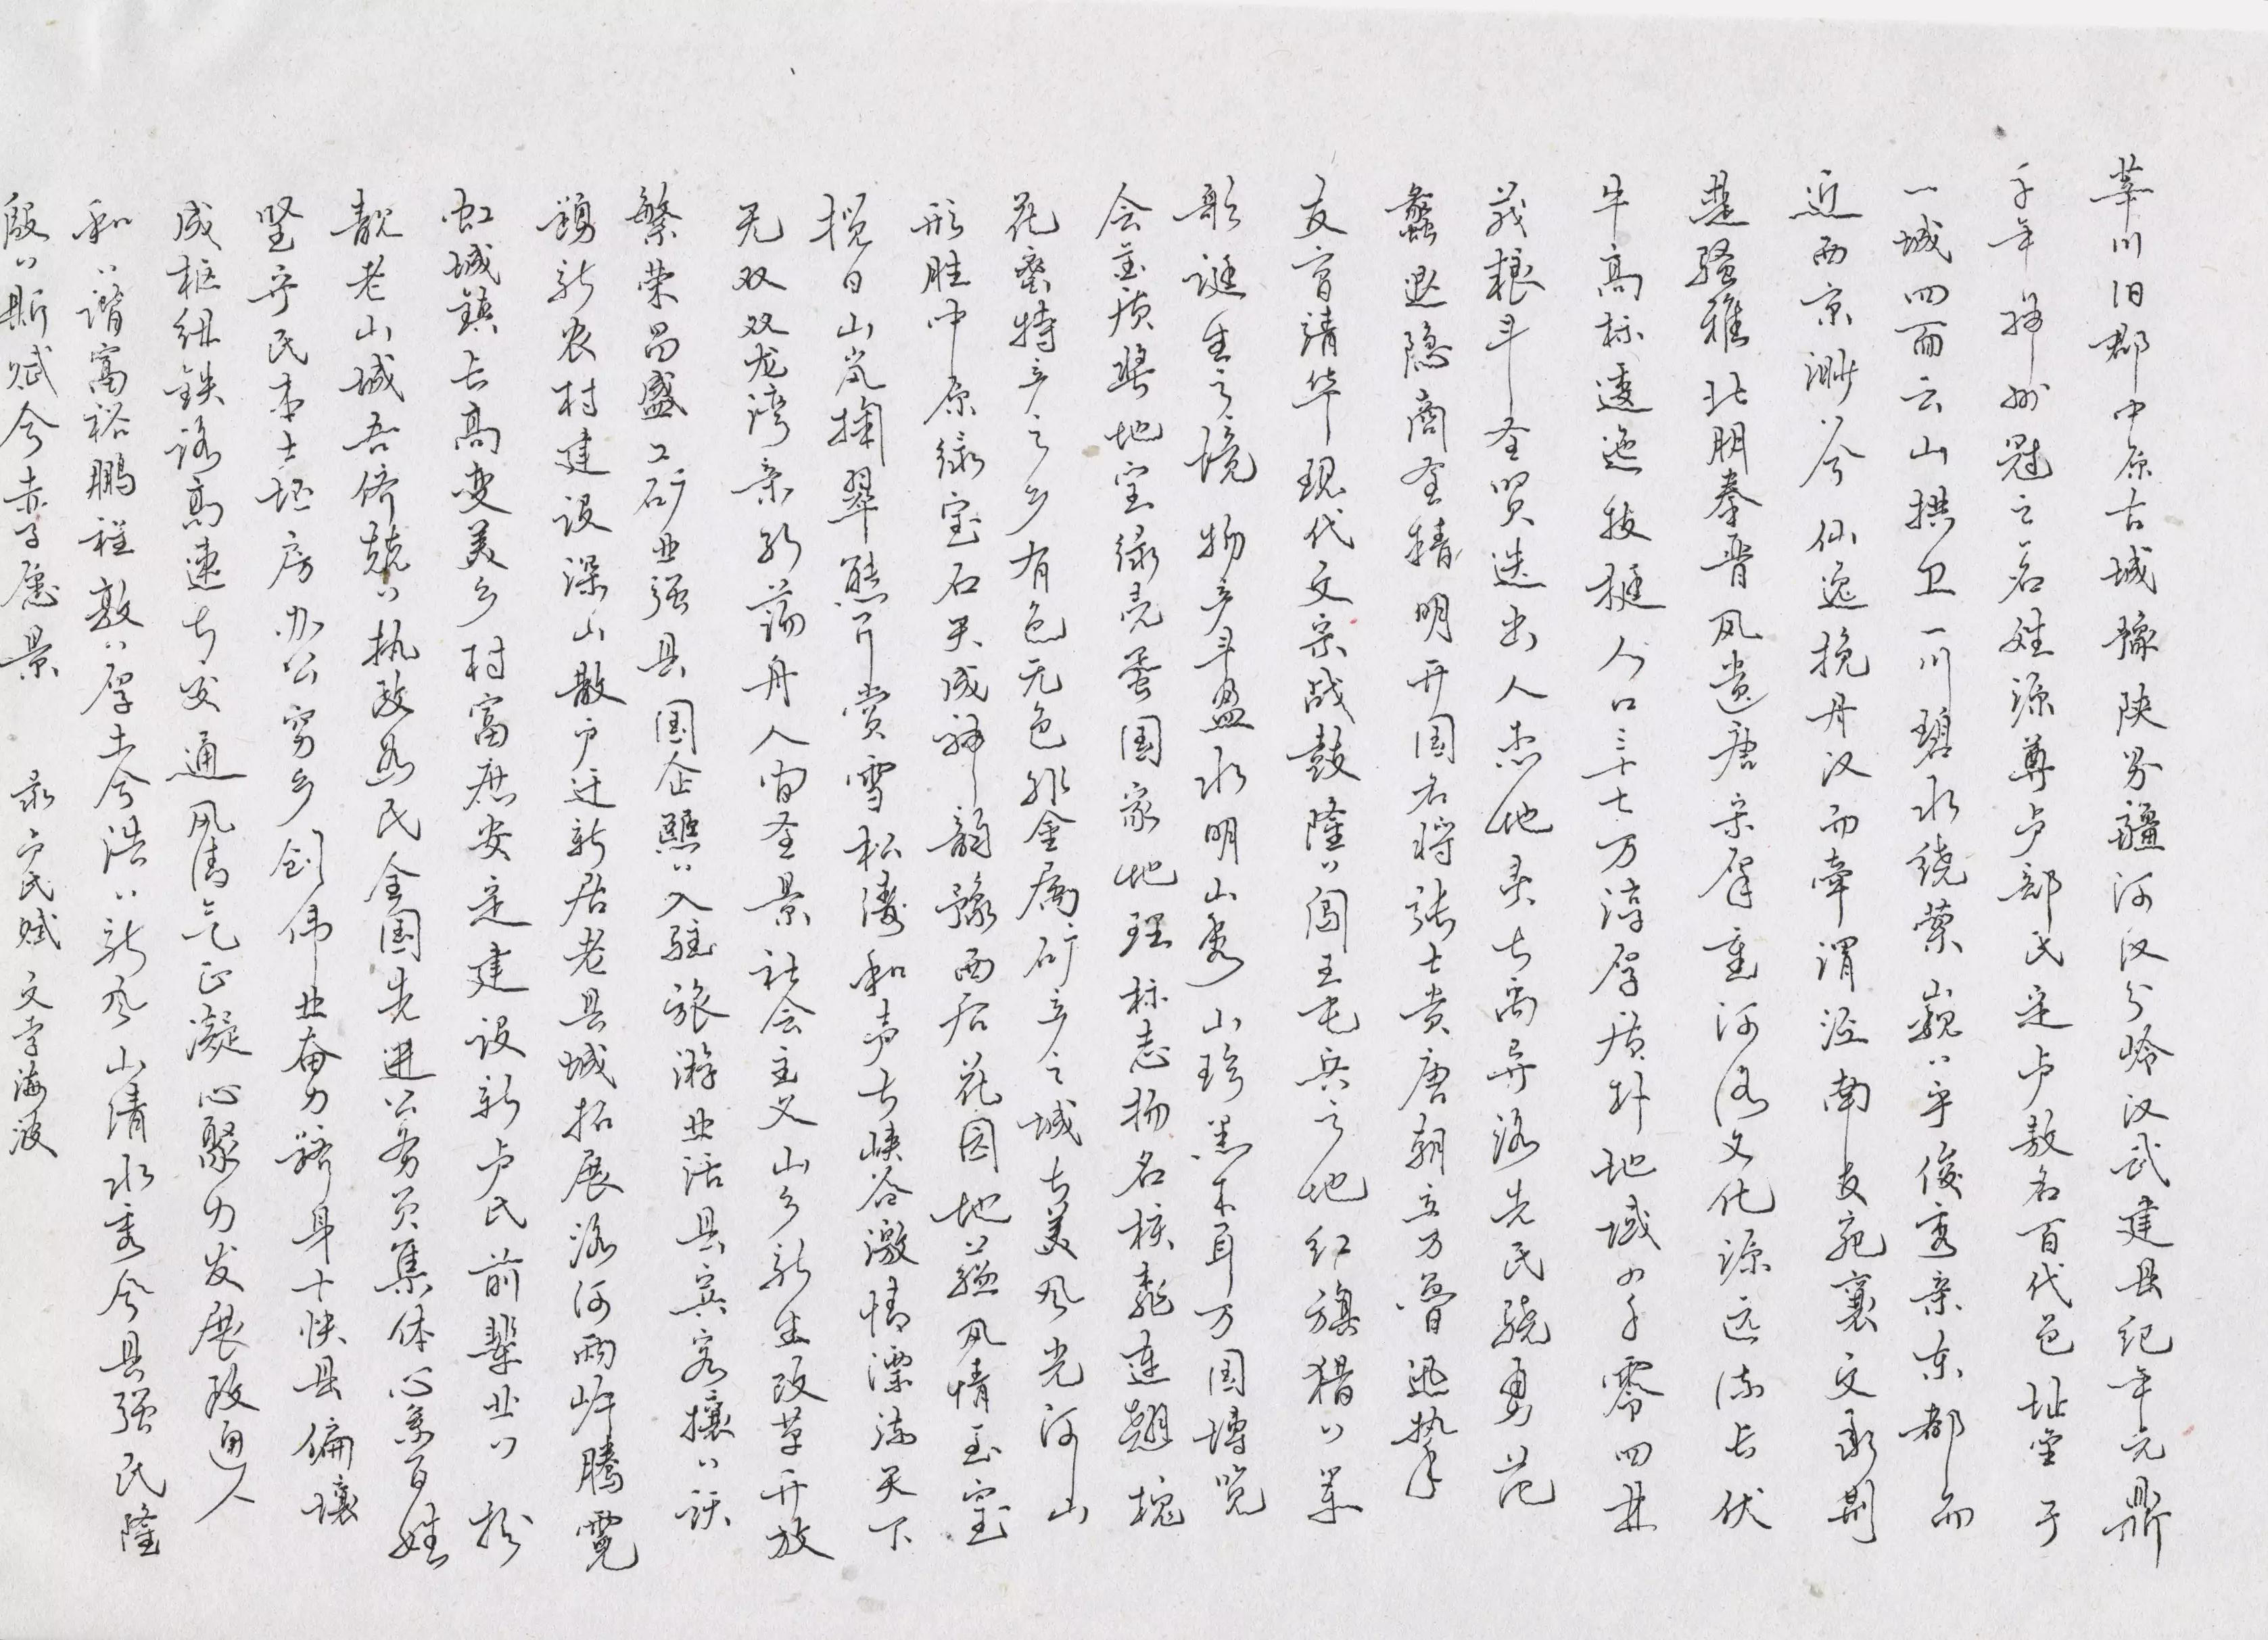 莘川旧郡中原古城豫陕界疆河汉分岭汉武建县纪年元鼎
千年 州冠之名姓源尊卢部氏定卢敖名百代邑址奠于
一城四面云山拱卫一川碧水绕萦巍〻乎俊秀亲东都而
近西京渺〻兮仙逸挽丹汉而牵渭泾南支宛襄文承荆
楚骚雅北朋秦晋风遗唐宗厚重河洛文化源远流长伏
牛高标逶迤拔挺人口三十七万淳厚质朴地域四千零四井
茂粮斗圣贤迭出人杰地灵大禹导洛先民骁勇范
蠡退隐商圣精明开国名将张士贵唐朝立功曾迅挚
友育清华现代文宗战鼓隆〻闯王屯兵之地红旗猎〻军
歌诞生之境物产斗盈水明山秀山珍黑木耳万国博览
会金质奖地宝绿壳蛋国家地理标志扬名核桃连翘槐
花蜜特产之乡有色无色非金属矿产之城大美风光河山
形胜中原绿宝石天成神韵豫西后花园地蕴风情玉皇
揽日山岚掬翠熊耳赏雪松涛和声大峡谷激情漂流天下
无双双龙湾亲水荡舟人间圣景社会主义山乡新生改革开放
繁荣昌盛工矿业强县国企骈〻入驻旅游业活县宾客攘〻跃
踊新农村建设深山散户迁新居老县城拓展洛河两岸腾霓
虹城镇长高变美乡村富庶安定建设新卢氏前辈业〻扮
靓老山城吾侪兢〻执政为民全国先进公务员集体心系百姓
坚守民本土坯房办公穷乡创伟业奋力跻身十快县偏壤
成枢纽铁路高速大发通风清气正凝心聚力发展政通人
和〻谐富裕鹏程敦〻厚土兮浩〻新风山清水秀兮县强民隆
殷〻斯赋兮赤子愿景 录卢氏赋 文字海波